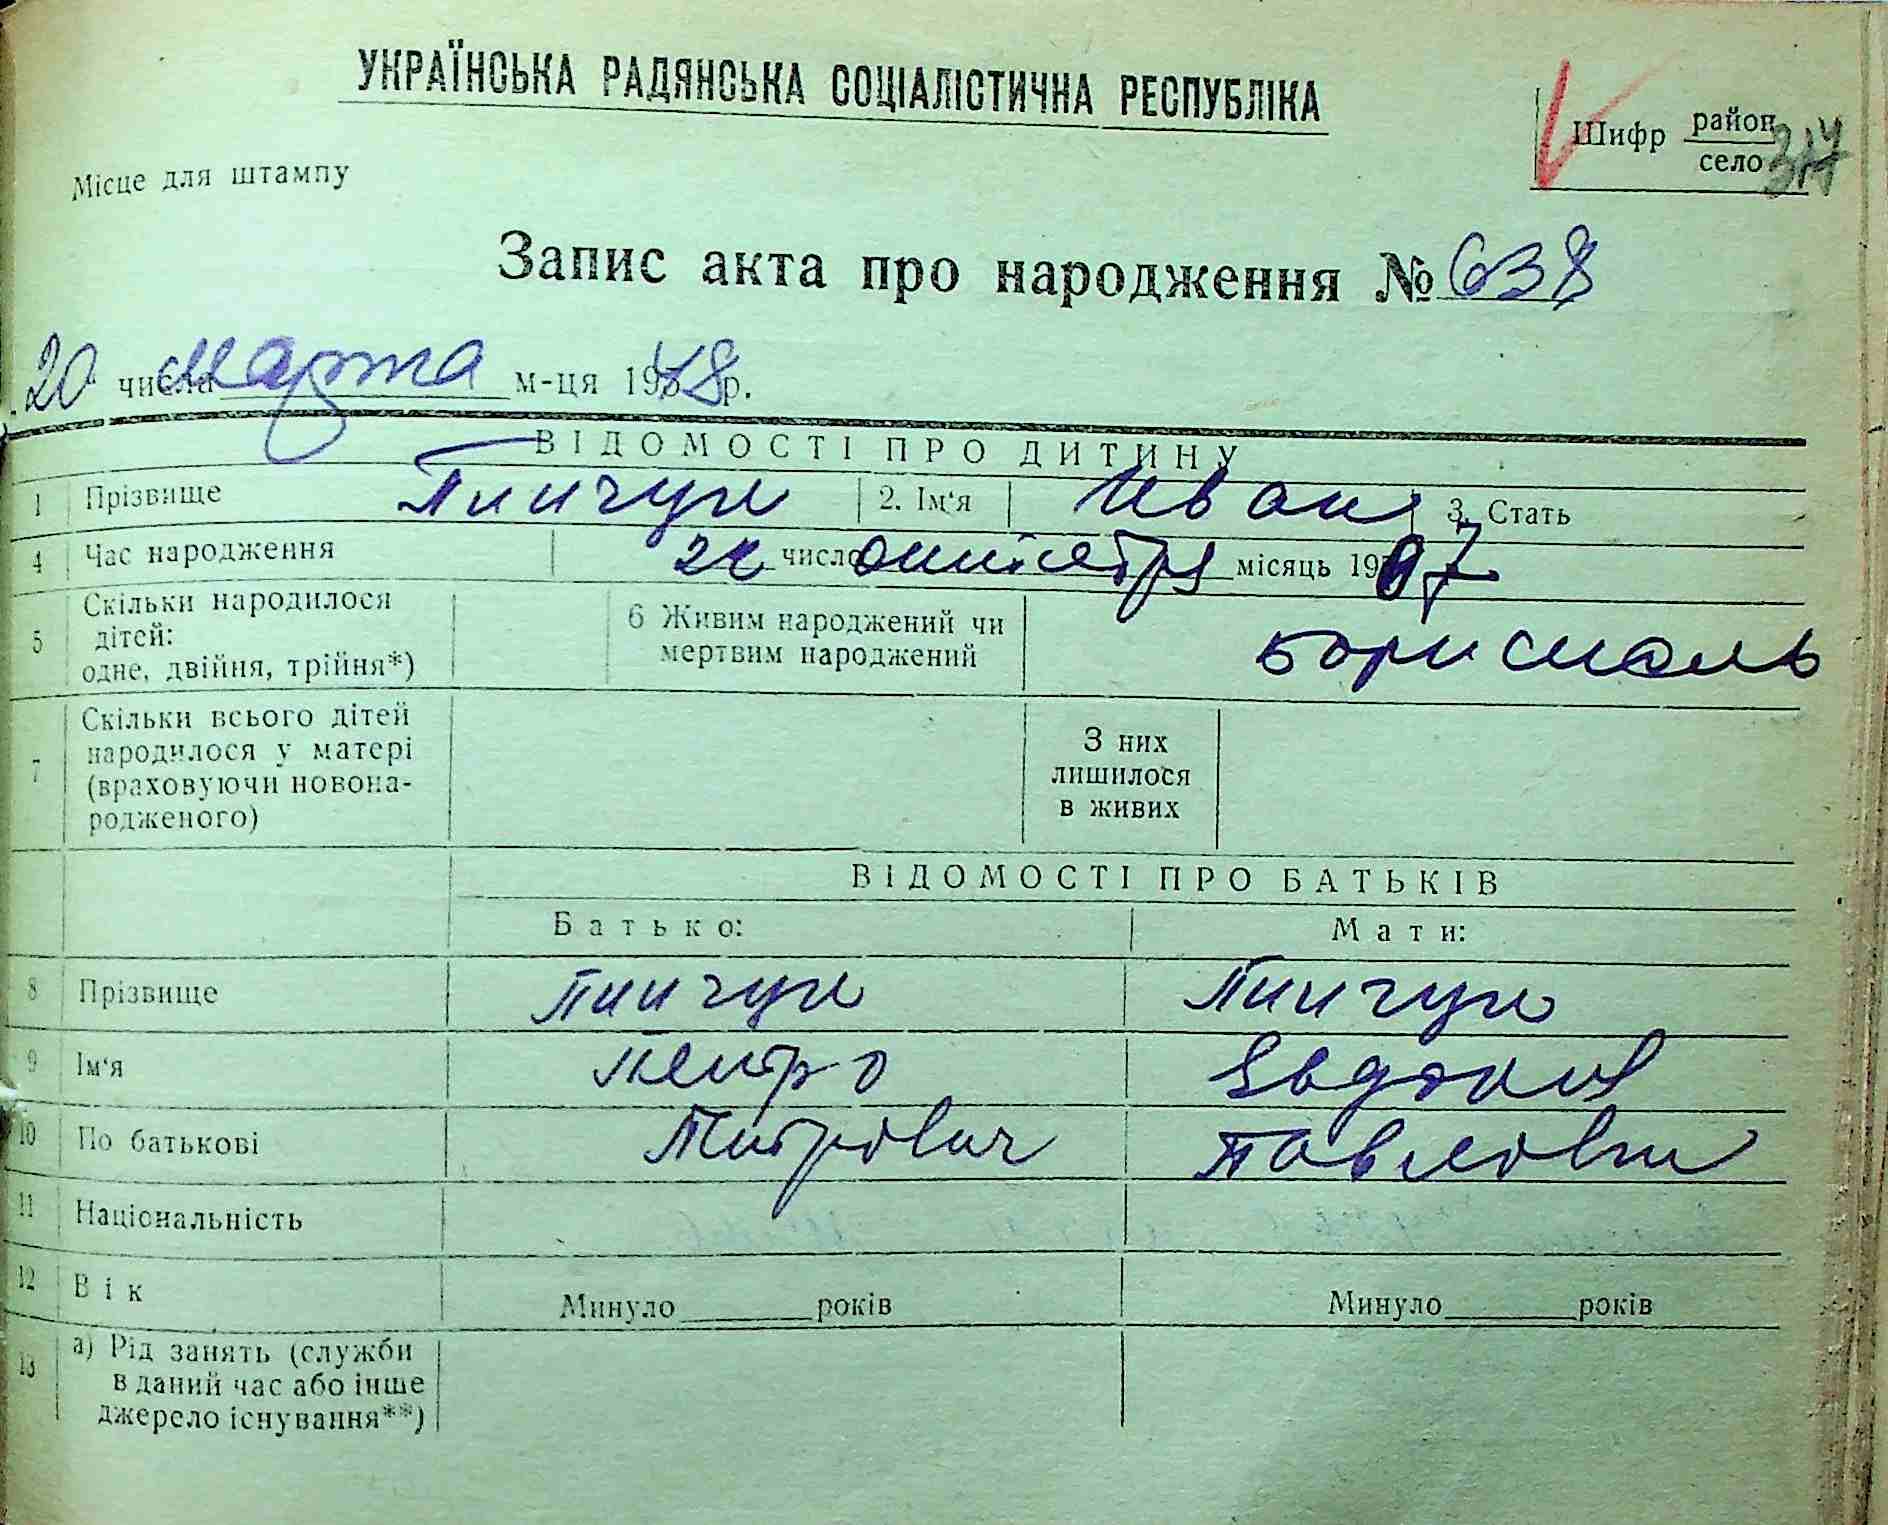 УКРАЇНСЬКА РАДЯНСЬКА СОЦІАЛІСТИЧНА РЕСПУБЛІКА
Шифр район
село 317
Місце для штампу
Запис акта про народження № 638
20 числа марта м-ця 1948 р.
ВІДОМОСТІ ПРО ДИТИНУ
1 Прізвище Пинчук 2. Ім‘я Иван 3. Стать
4 Час народження число октября місяць 1907
5 Скільки народилося дітей: одне, двійня, трійня*) 6 Живим народжений чи мертвим народжений Бориспіль
7 Скільки всього дітей народилося у матері (враховуючи новонародженого) З них лишилося в живих
ВІДОМОСТІ ПРО БАТЬКІВ
Батько: Мати:
8 Прізвище Пинчук Пинчук
9 Ім‘я Петро Евдокия
10 По батькові Митрович Павловна
11 Національність
12 Вік Минуло років Минуло років
13 а) Рід занять (служби в даний час або інше джерело існування**)